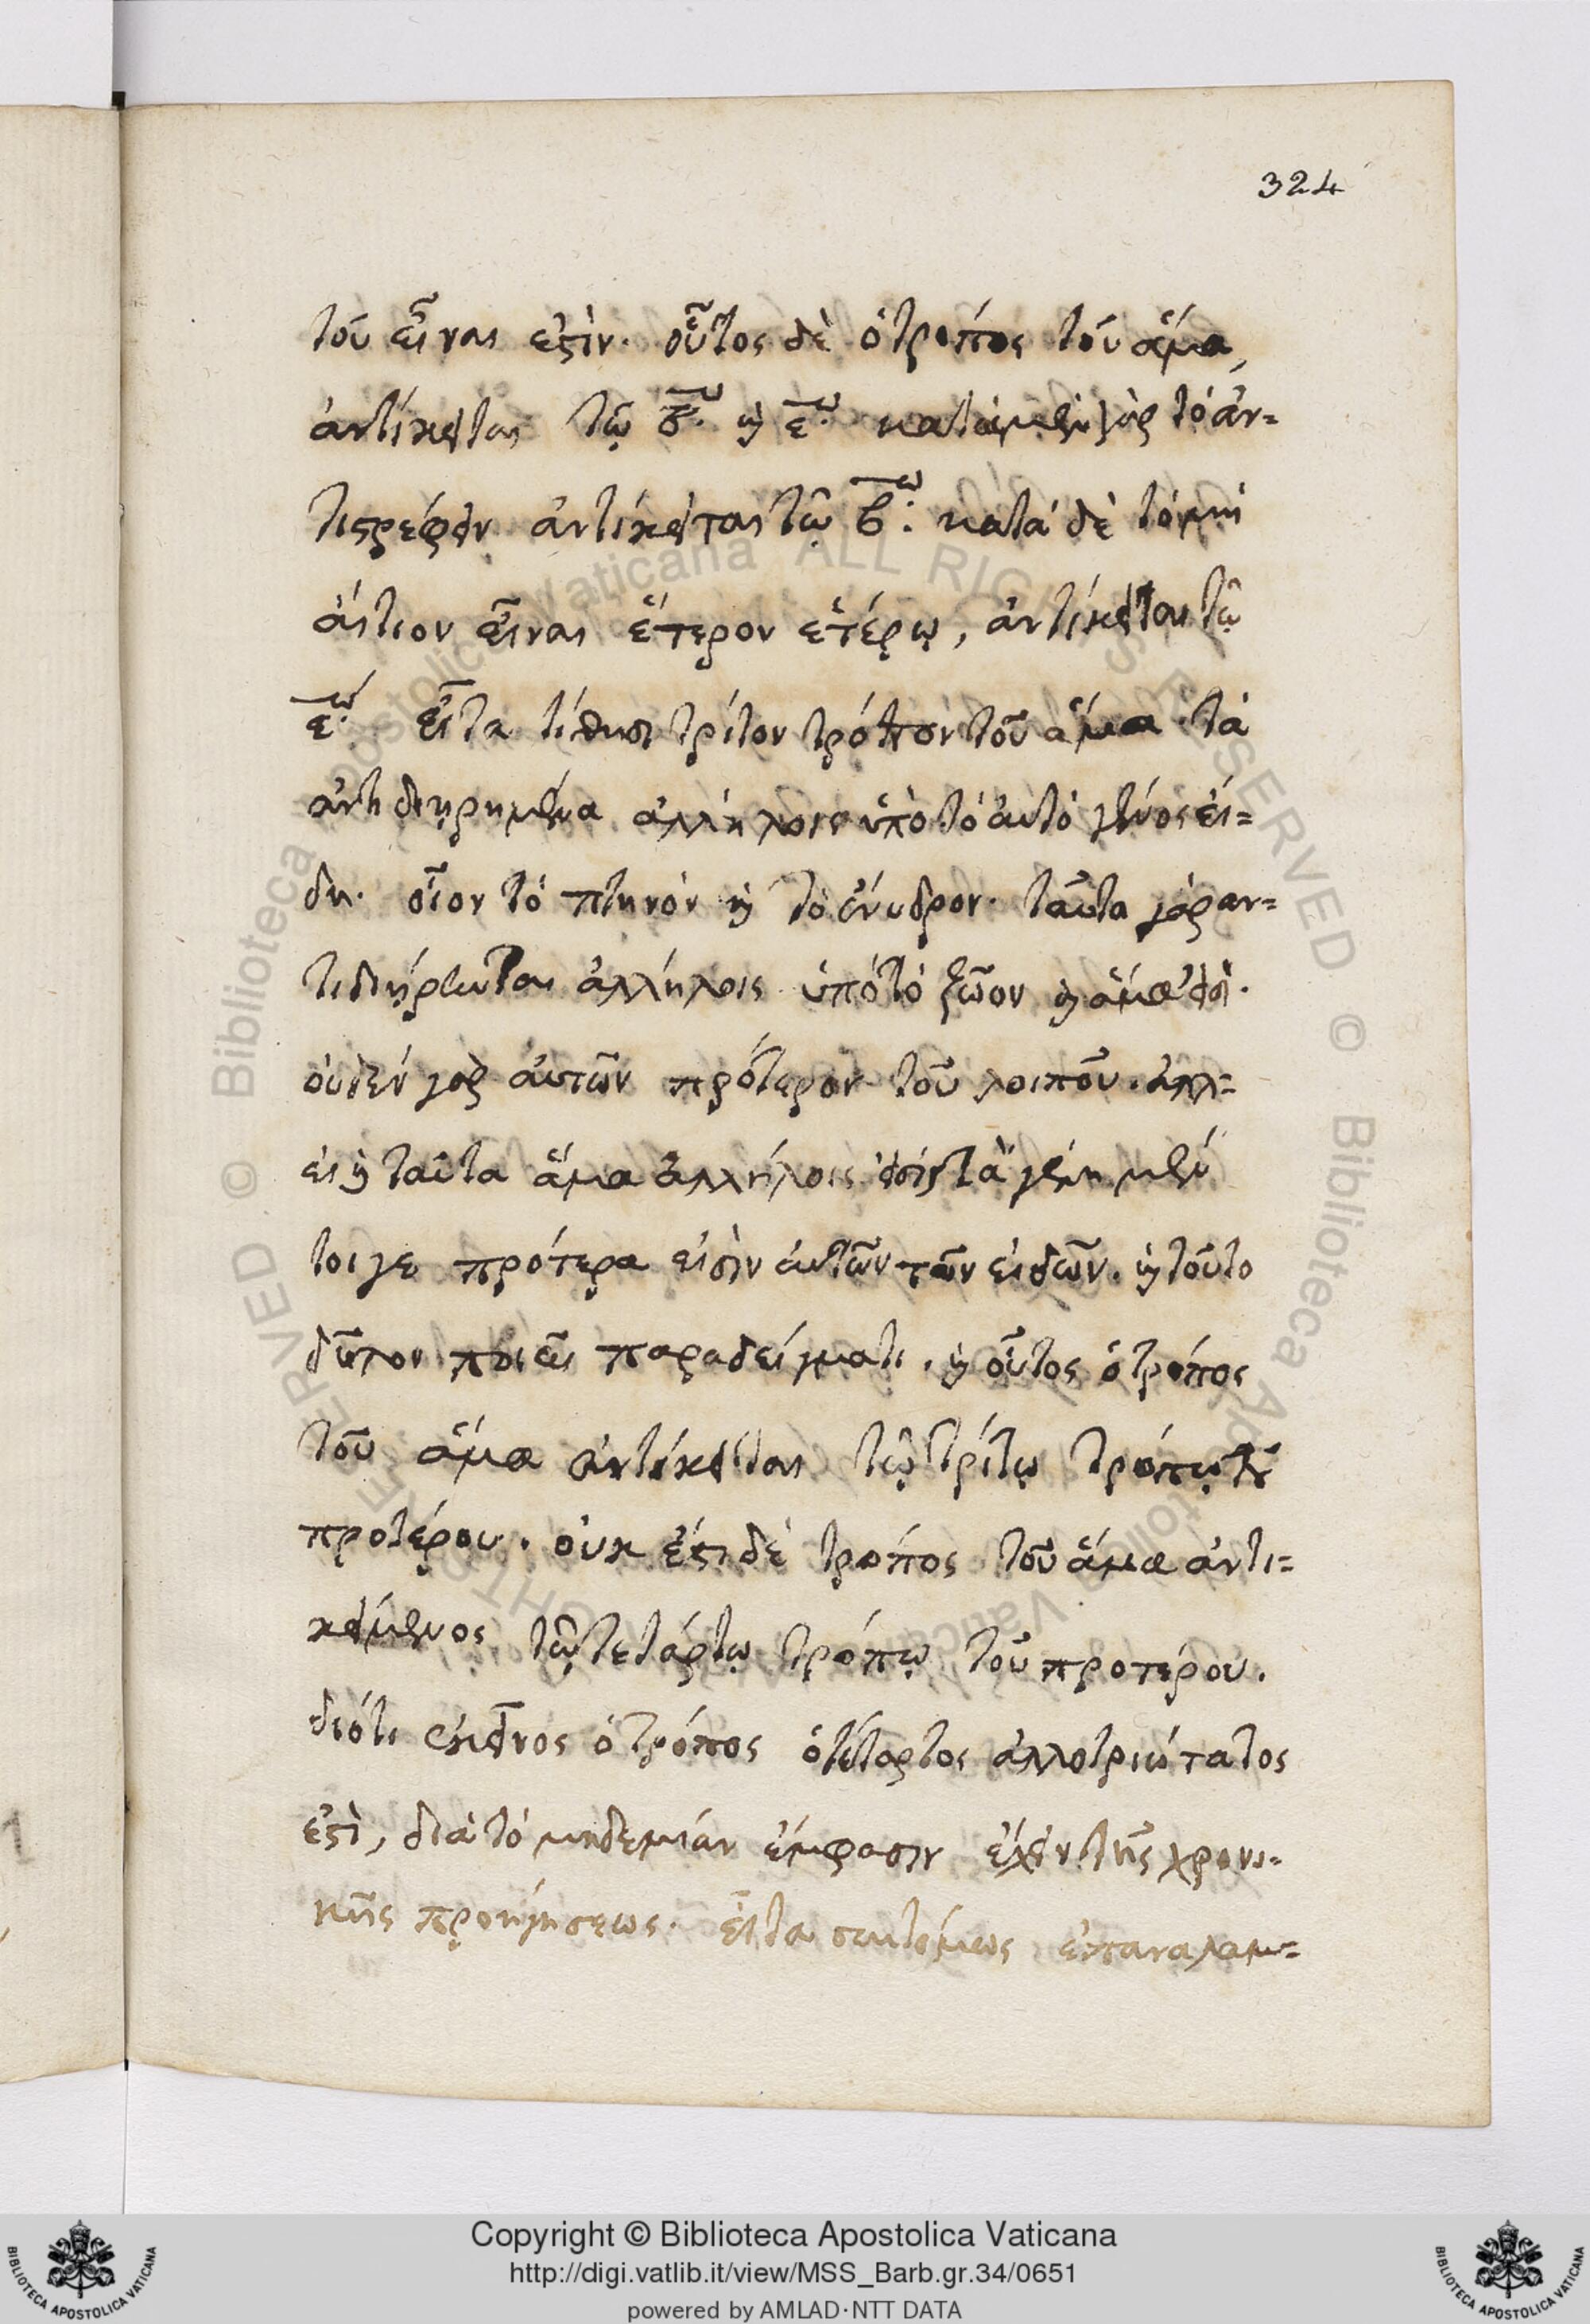 324
τοῦ εἶναι ἐστίν. οὗτος δὲ ὁ τρόπος τοῦ ἅμα,
ἀντίκειται τῷ β.ῳ καὶ ε.ῳ κατὰ μὲν γὰρ τὸ ἀν-
τιστρέφειν ἀντίκειται τῷ β.ῳ κατὰ δὲ τὸ μὴ
αἴτιον εἶναι ἕτερον ἑτέρῳ, ἀντίκειται τῷ
ε.ῳ εἶτα τίθησι τρίτον τρόπον τοῦ ἅμα τὰ
ἀντιδιῃρημένα ἀλλήλοις ὑπὸ τὸ αὐτὸ γένος εἴ-
δη. οἷον τὸ πτηνὸν καὶ τὸ ἔνυδρον. ταῦτα γὰρ ἀν-
τιδιῄρηνται ἀλλήλοις ὑπὸ τὸ ζῶον καὶ ἅμα εἰσί.
οὐδὲν γὰρ αὐτῶν πρότερον τοῦ λοιποῦ. ἀλλ-
εἰ καὶ ταῦτα ἅμα ἀλλήλοις εἰσί, τὰ γένη μέν
τοι γε πρότερα εἰσὶν αὐτῶν τῶν εἰδῶν. καὶ τοῦτο
δῆλον ποιεῖ παραδείγματι. καὶ οὗτος ὁ τρόπος
τοῦ ἅμα ἀντίκειται τῷ τρίτῳ τρόπῳ τοῦ
προτέρου. οὐκ ἔστι δὲ τρόπος τοῦ ἅμα ἀντι-
κείμενος τῷ τετάρτῳ τρόπῳ τοῦ προτέρου.
διότι ἐκεῖνος ὁ τρόπος ὁ τέταρτος ἀλλοτριώτατος
ἐστί, διὰ τὸ μηδεμίαν ἔμφασιν ἔχειν τῆς χρονι-
κῆς προηγήσεως. εἶτα συντόμως ἐπαναλαμ-
© Biblioteca Apostolica Vaticana ALL RIGHTS RESERVED © Biblioteca Apostolica Vaticana ALL RIGHTS RESERVED
Copyright © Biblioteca Apostolica Vaticana
http://digi.vatlib.it/view/MSS_Barb.gr.34/0651
powered by AMLAD·NTT DATA
BIBLIOTECA APOSTOLICA VATICANA
BIBLIOTECA APOSTOLICA VATICANA